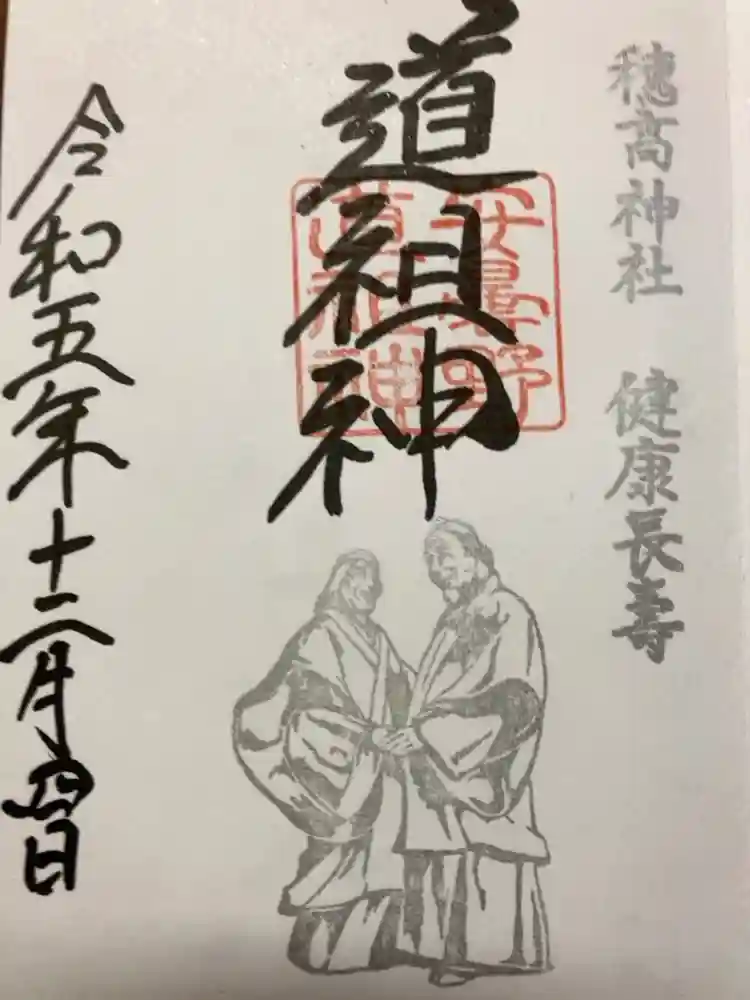 穂高神社 健康長壽
道祖神
安曇野
道祖神
令和五年十二月四日